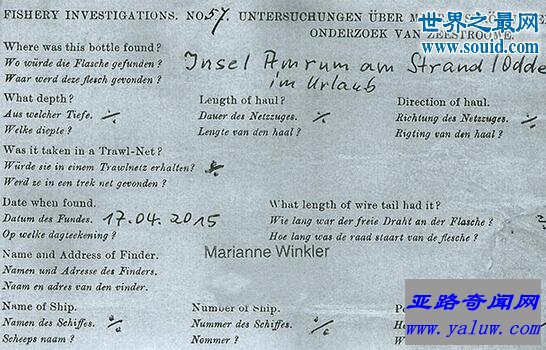 FISHERY INVESTIGATIONS. No. 57. UNTERSUCHUNGEN ÜBER
世界之最
www.souid.com
ONDERZOEK VAN ZEESTROOME
Where was this bottle found?
Wo würde die Flasche gefunden?
Waar werd deze flesch gevonden?
Insel Amrum am Strand (Odde
im Urlaub
What depth? Length of haul? Direction of haul.
Aus welcher Tiefe. Dauer des Netzzuges. Richtung des Netzzuges.
Welke diepte? Lengte van den haal? Rigting van den haal?
Was it taken in a Trawl-Net?
Würde sie in einem Trawlnetz erhalten?
Werd ze in een trek net gevonden?
Date when found. What length of wire tail had it?
Datum des Fundes. 17.04.2015 Wie lang war der freie Draht an der Flasche?
Op welke dagteekening? Hoe lang was de raad staart van de flesche?
Name and Address of Finder. Marianne Winkler
Namen und Adresse des Finders.
Naam en adres van den vinder.
Name of Ship. Number of Ship.
Namen des Schiffes. Nummer des Schiffes.
Scheeps naam? Nommer?
亚路奇闻网
www.yaluw.com